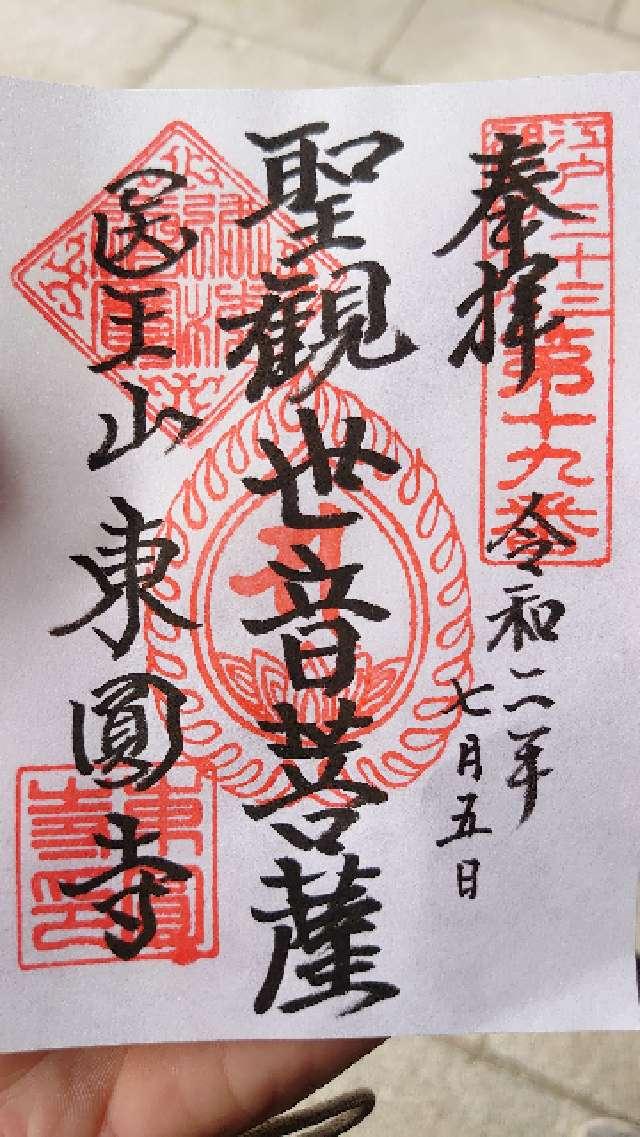 奉拝
江戸三十三
第十九番
令和二年
七月五日
聖觀世音菩薩
医王山東圓寺